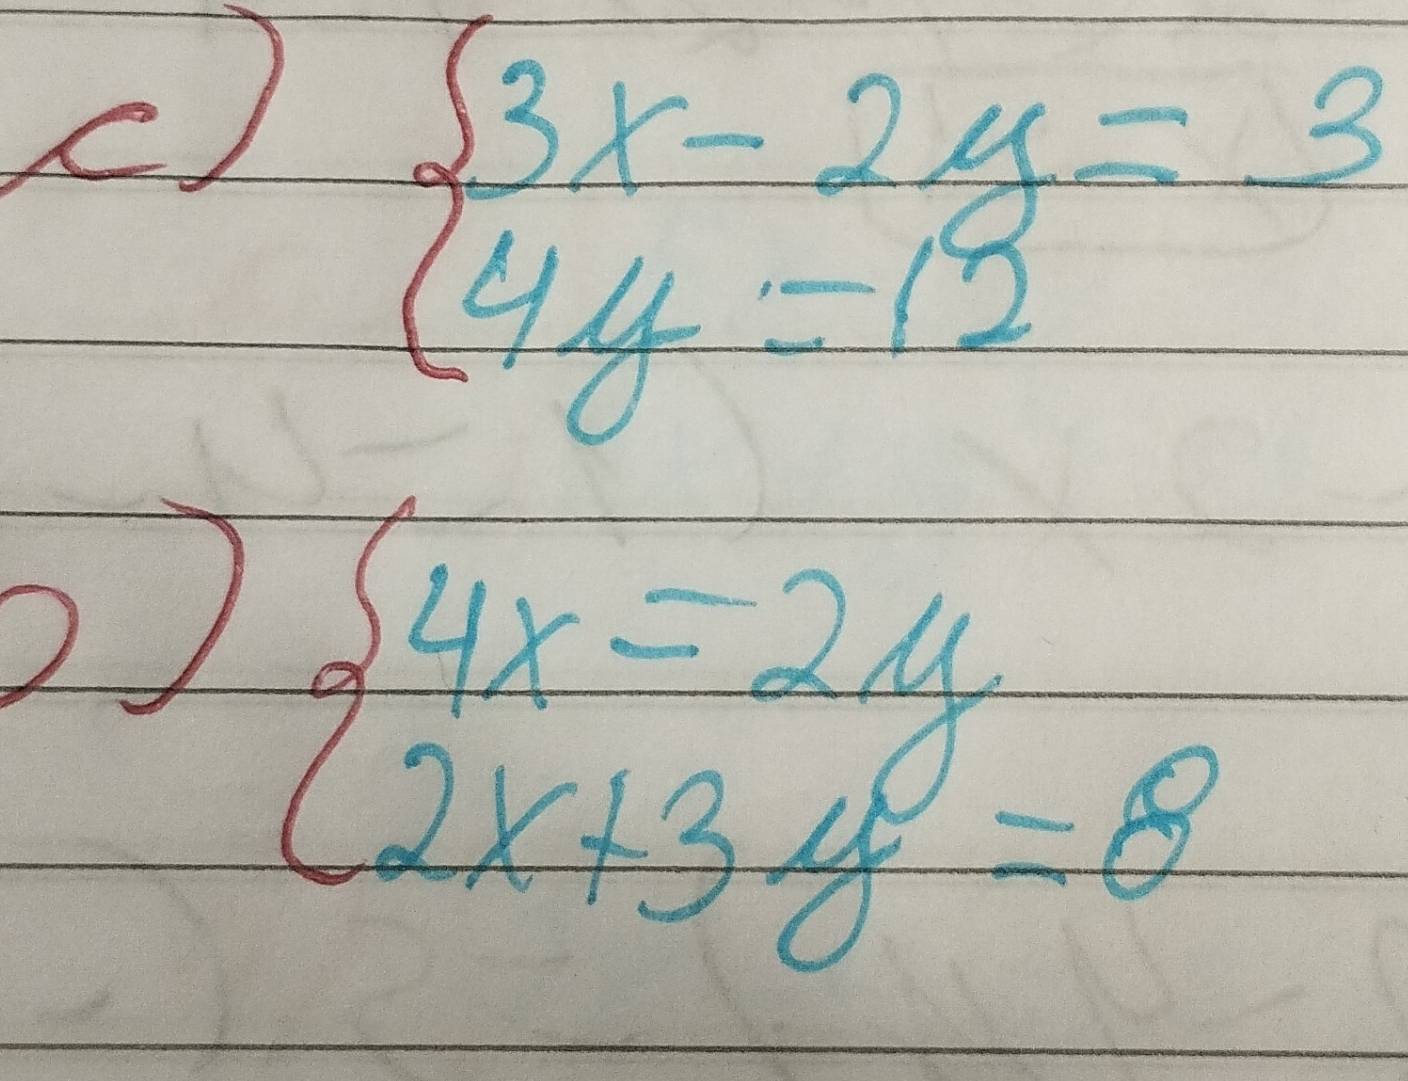 c) { 3x - 2y = 3
4y = 12
) { 4x = 2y
2x + 3y = 8